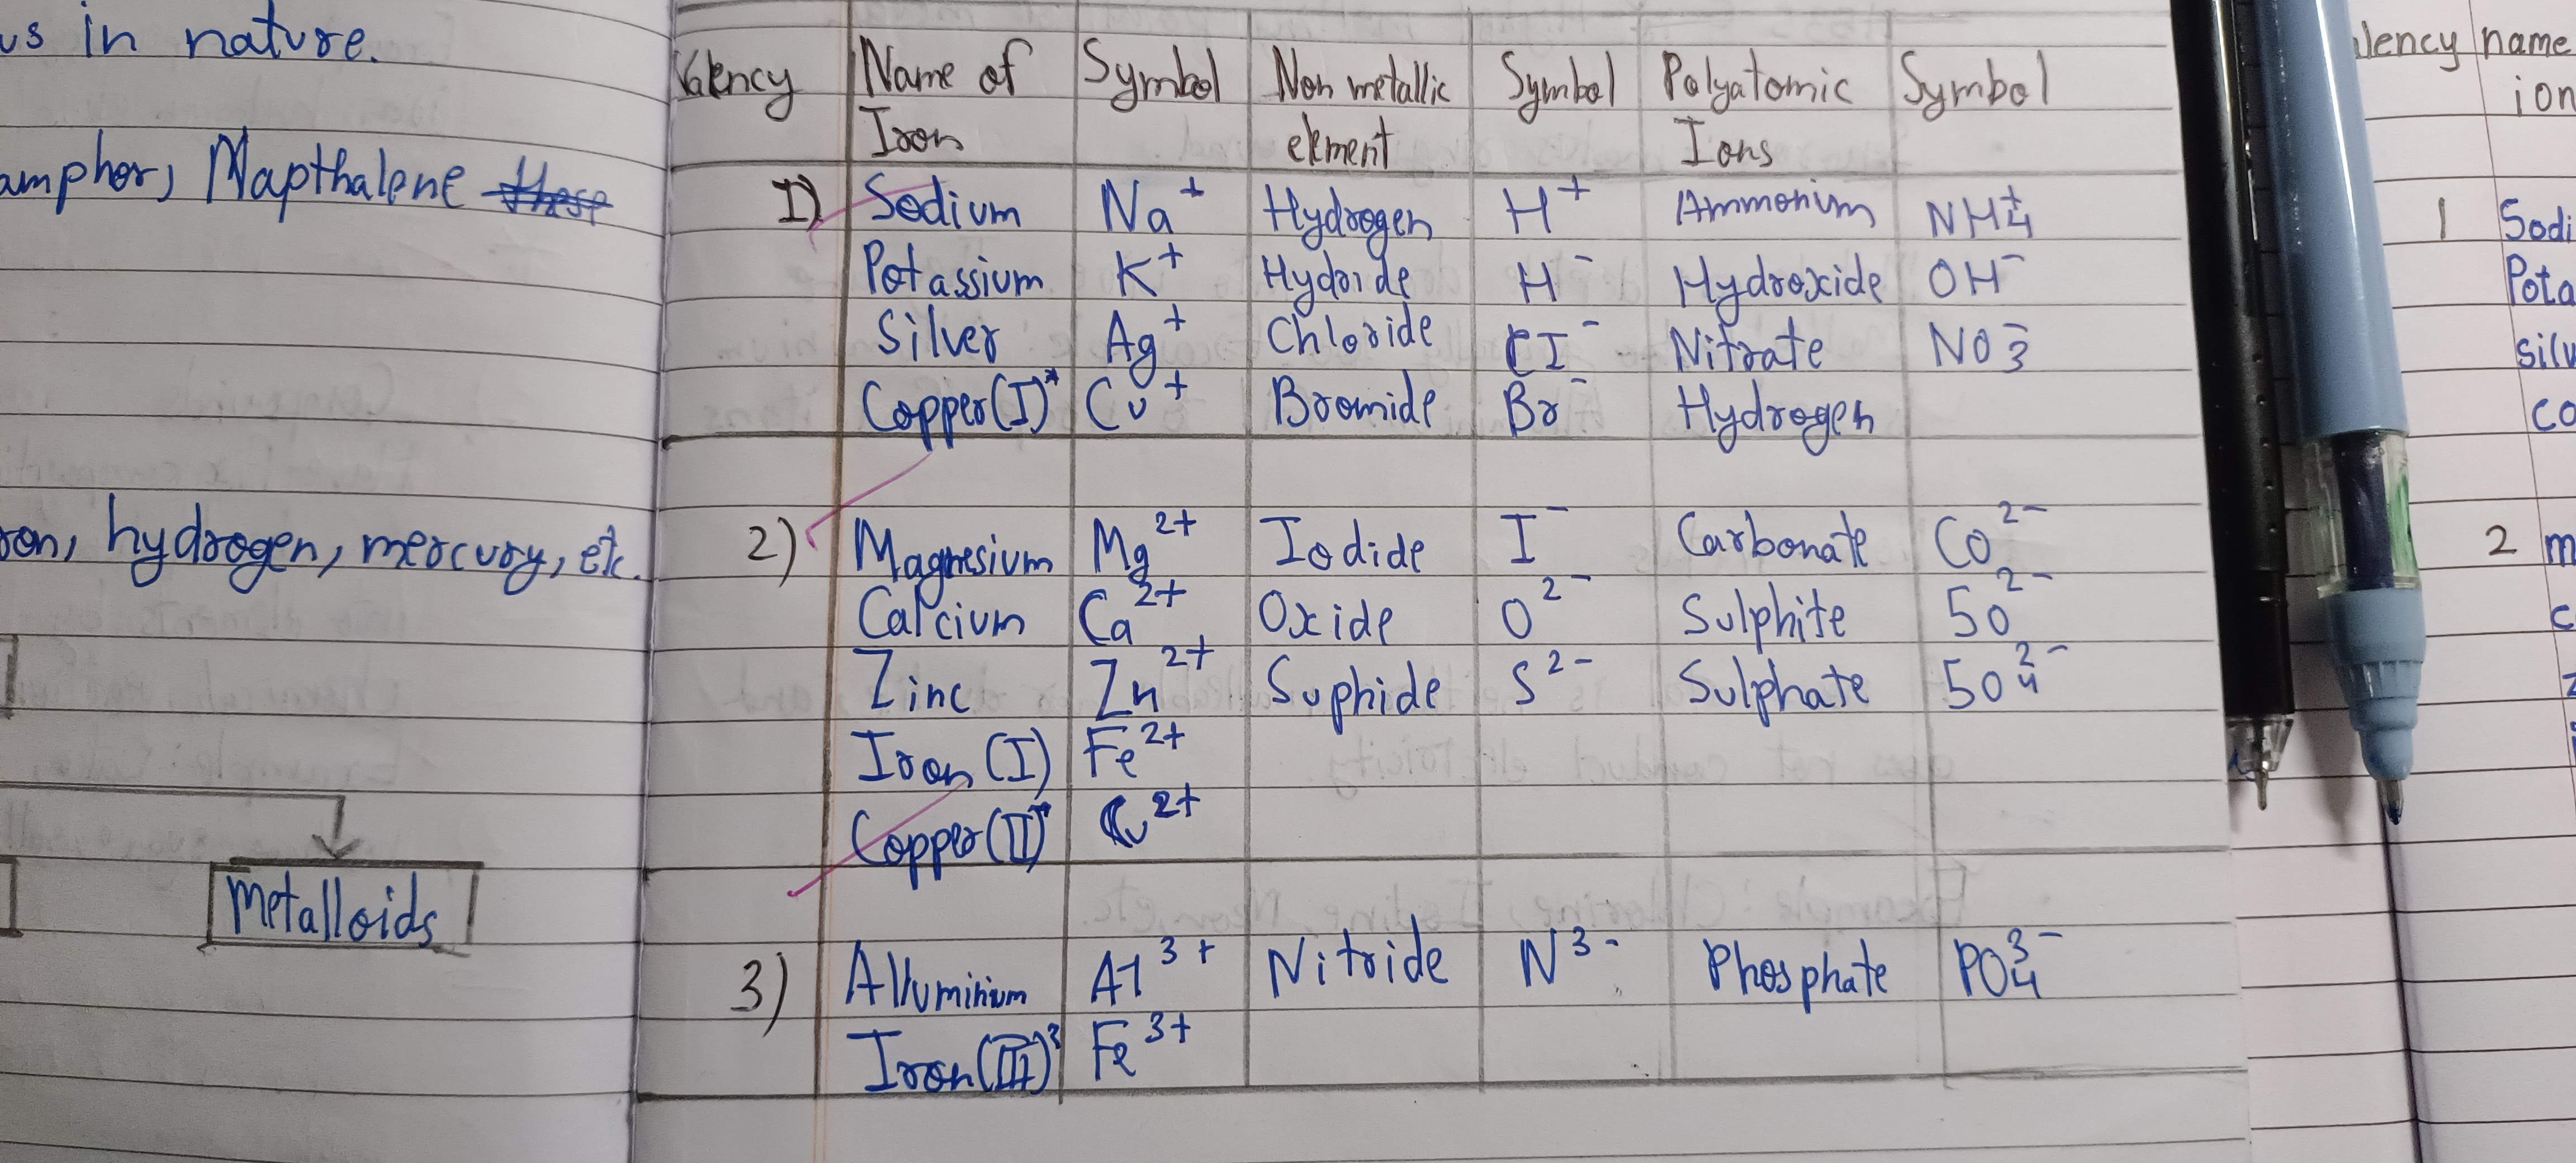 us in nature.
amphor, Napthalene
ron, hydrogen, mercury, etc.
Metalloids
Valency Name of Symbol Non metallic Symbol Polyatomic Symbol
Iron element Ions
1) Sodium Na+ Hydrogen H+ Ammonium NH4+
Potassium K+ Hydride H- Hydroxide OH-
Silver Ag+ Chloride Cl- Nitrate NO3-
Copper(I)* Cu+ Bromide Br- Hydrogen
2) Magnesium Mg2+ Iodide I- Carbonate Co2-
Calcium Ca2+ Oxide O2- Sulphite SO2-
Zinc Zn2+ Suphide S2- Sulphate SO42-
Iron (I) Fe2+
Copper(II)* Cu2+
3) Alluminium Al3+ Nitride N3- Phosphate PO43-
Iron(III)* Fe3+
lency name
ion
1 Sodi
Pota
silv
co
2 m
c
z